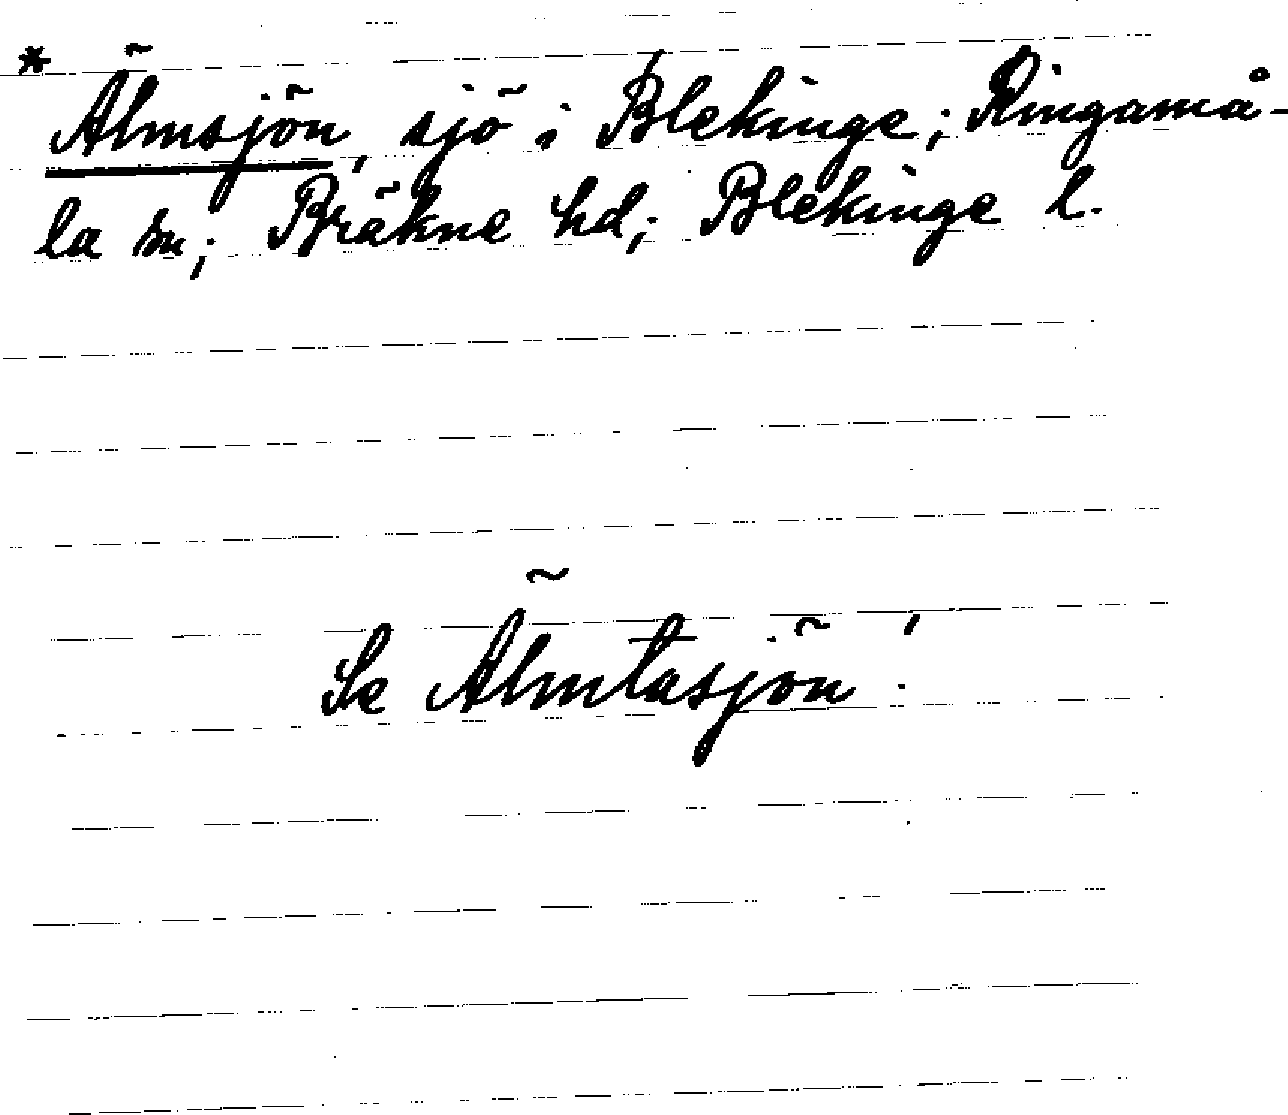 * Älmsjön, sjö i Blekinge; Ringamå-
la sn; Bräkne hd; Blekinge l.
Se Älmtasjön!